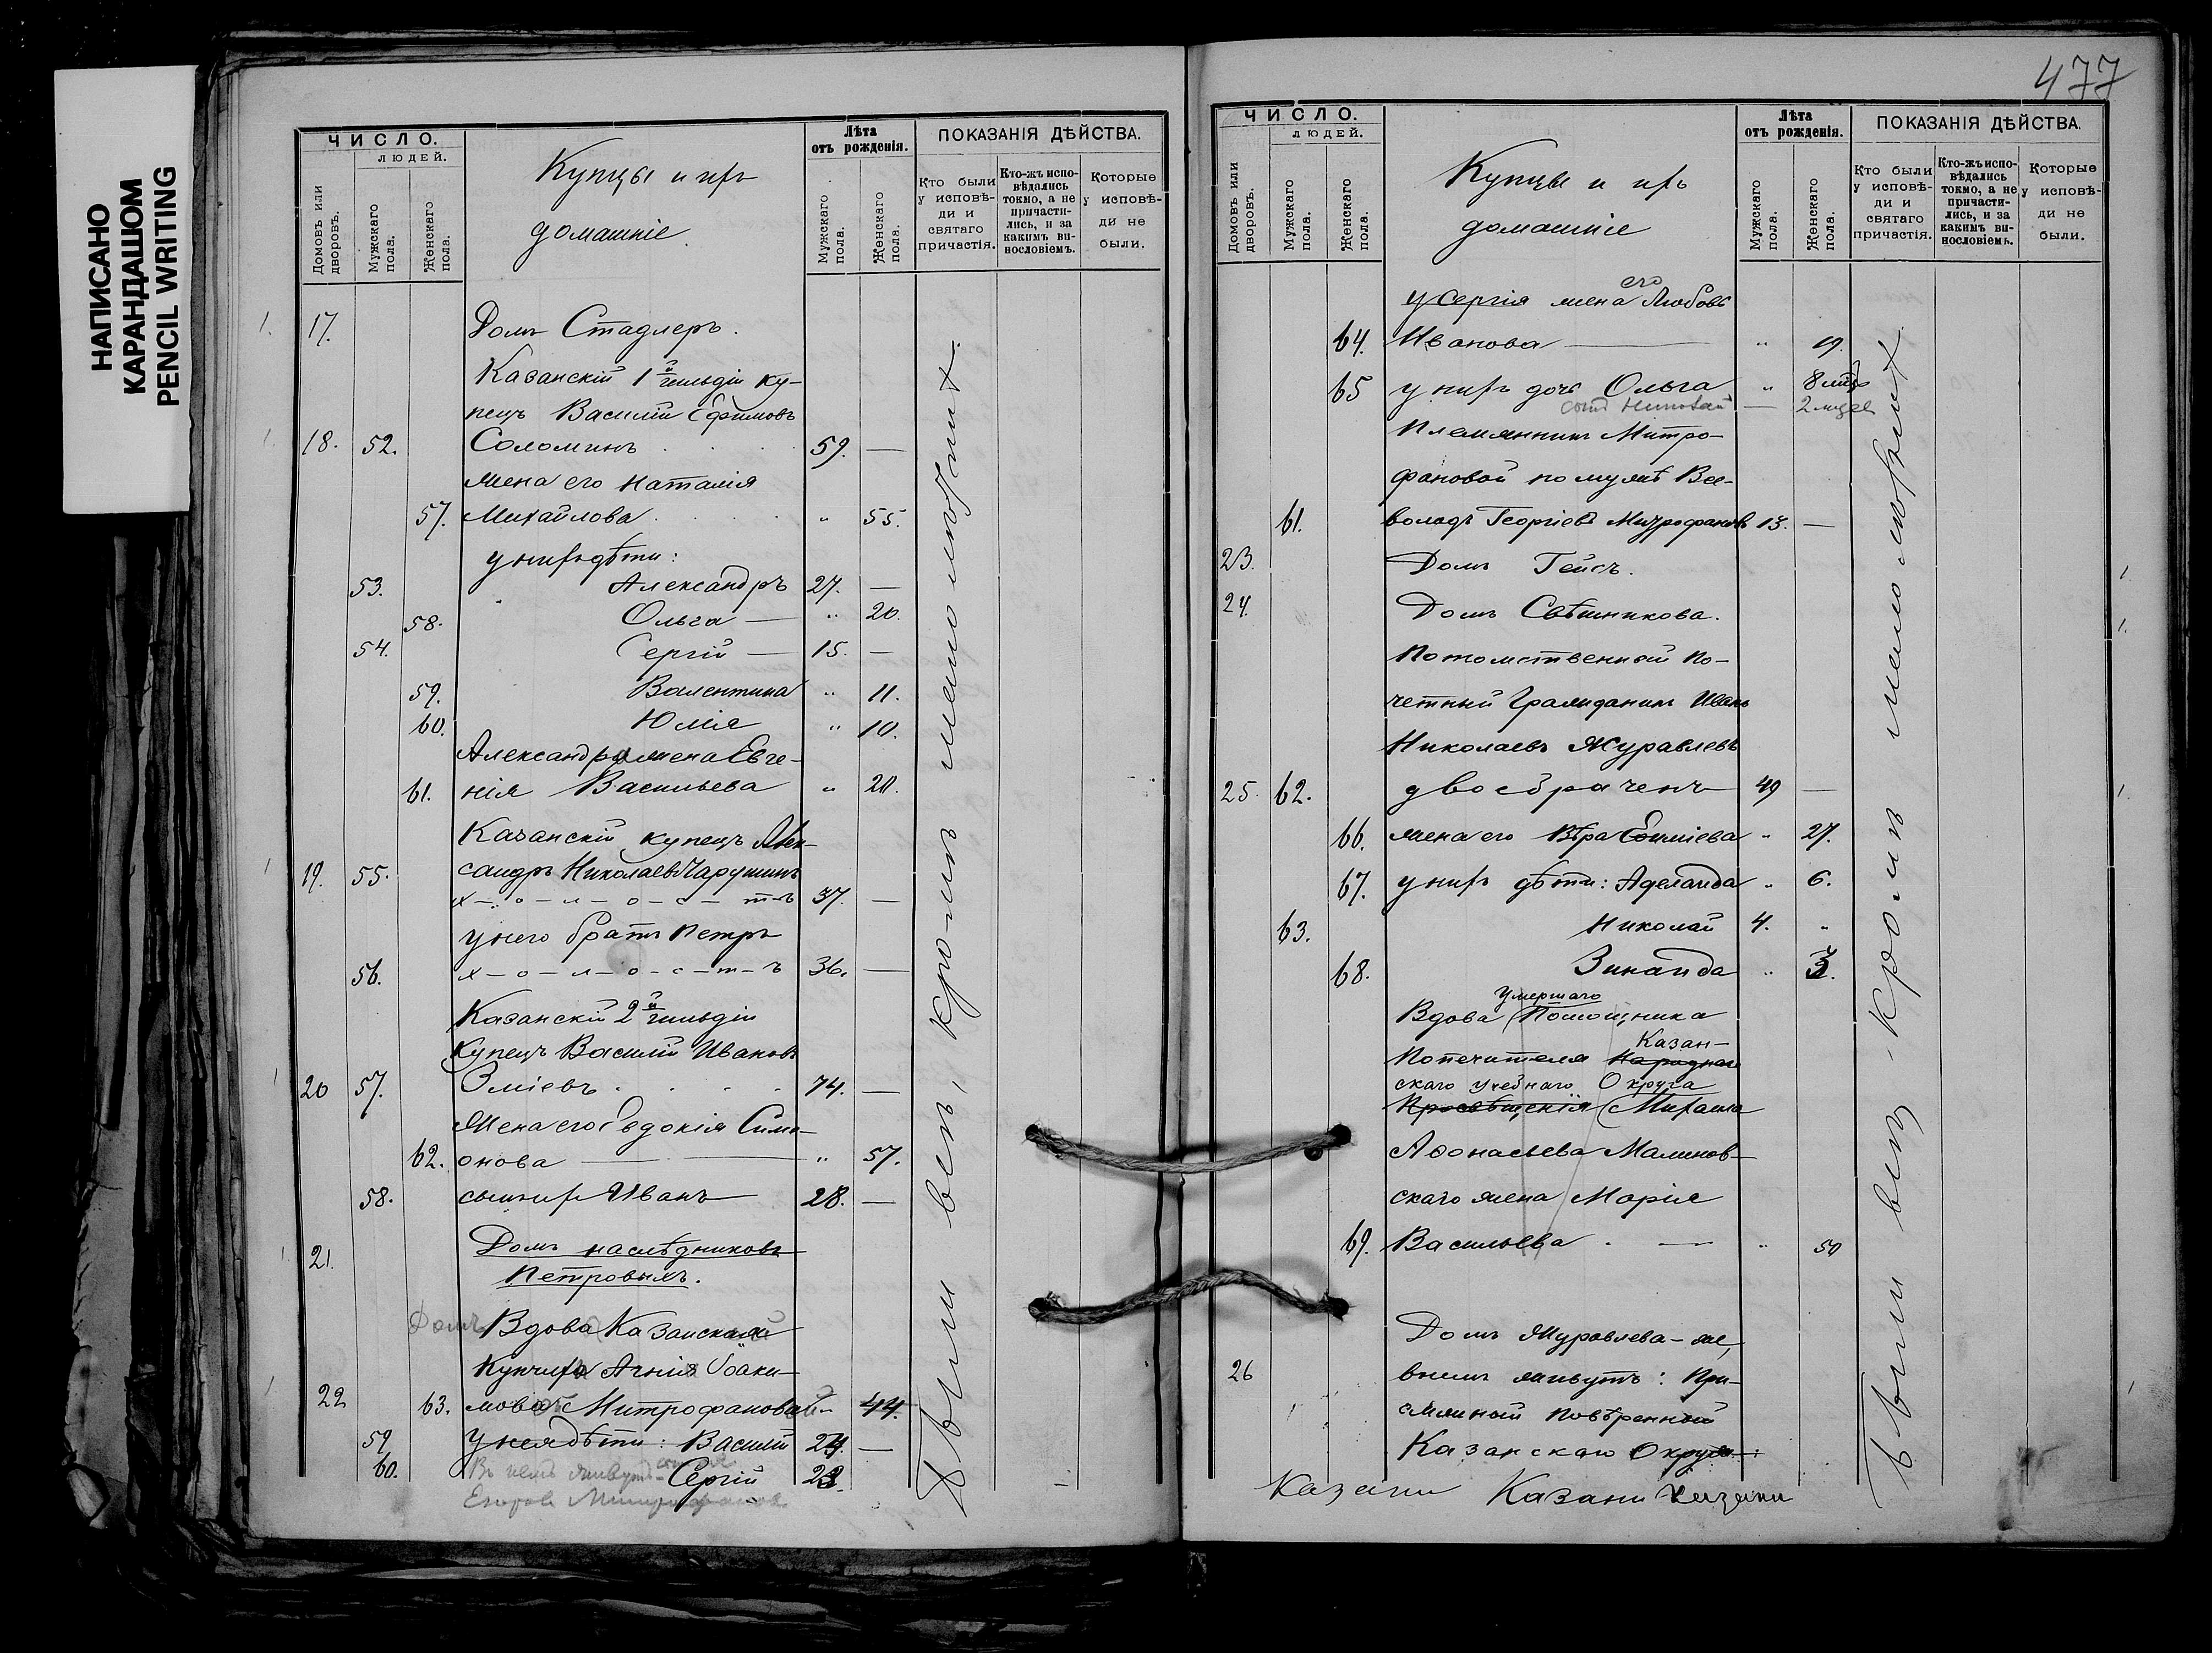 НАПИСАНО
КАРАНДАШОМ
PENCIL WRITING
ЧИСЛО.
ЛЮДЕЙ.
Домовъ или дворовъ.
Мужскаго пола.
Женскаго пола.
Купцы и ихъ
домашніе.
Лѣта
отъ рожденія.
Мужскаго пола.
Женскаго пола.
ПОКАЗАНІЯ ДѢЙСТВА.
Кто были у исповѣди и святаго причастія.
Кто-жъ исповѣдались токмо, а не причастились, и за какимъ винословіемъ.
Которые у исповѣди не были.
1. 17. Домъ Стадлеръ.
Казанскій 1й гильдіи ку-
пецъ Василій Ефимовъ
1. 18. 52. Соломинъ 59. —
Жена его Наталія
57. Михайлова " 55.
у нихъ дѣти:
53. Александръ 27. —
58. Ольга — " 20.
54. Сергій — 15. —
59. Валентина " 11.
60. Юлія " 10.
Александра жена Евге-
61. нія Васильева " 20.
Казанскій купецъ Алек-
1 19. 55. сандръ Николаевъ Чарушинъ
х-о-л-о-с-тъ 37. —
у него братъ Петръ
56. х-о-л-о-с-т-ъ 36. —
Казанскій 2й гильдіи
Купецъ Василій Ивановъ
1 20 57. Зміевъ 74. —
Жена его Евдокія Сим-
62. онова — " 57.
58. сынъ ихъ Иванъ 28. —
1 21. Домъ наслѣдниковъ
Петровыхъ.
Домъ Вдова Казанская
Купчиха Агнія
1 22 63. Митрофановой 44.
59 У нея дѣти: Василій 24. —
60. Въ немъ живутъ Сергій
Егоровъ Митрофановъ
Были всѣ, кромѣ малолѣтнихъ.
477
ЧИСЛО.
ЛЮДЕЙ.
Домовъ или дворовъ.
Мужскаго пола.
Женскаго пола.
Купцы и ихъ
домашніе
Лѣта
отъ рожденія.
Мужскаго пола.
Женскаго пола.
ПОКАЗАНІЯ ДѢЙСТВА.
Кто были у исповѣди и святаго причастія.
Кто-жъ исповѣдались токмо, а не причастились, и за какимъ винословіемъ.
Которые у исповѣди не были.
у Сергія жена его Любовь
64. Иванова — " 19.
65 у нихъ дочь Ольга "
сынъ Николай — 2 мѣс
Племянникъ Митро-
фановой по мужѣ Все-
61. володъ Георгіевъ Митрофановъ 13. —
23. Домъ Гейсъ. 1.
24. Домъ Свѣшникова. 1.
Потомственный По-
четный Гражданинъ Иванъ
Николаевъ Журавлевъ
25. 62. двоебраченъ 49 — 1.
66. жена его Вѣра " 27.
67. у нихъ дѣти: Аделаида " 6.
63. Николай 4. "
68. Зинаида " 3.
умершаго
Вдова Помощника
Казан-
Попечителя Народнаго
скаго учебнаго Округа
Просвѣщенія Михаила
Аѳонасьева Малинов-
скаго жена Марія
69. Васильева — " 50
Домъ Журавлева-же,
26 въ немъ живутъ: При- 1
сяжный повѣренный
Казанскаго Округа:
Казани Казани Казани
Были всѣ, кромѣ малолѣтнихъ